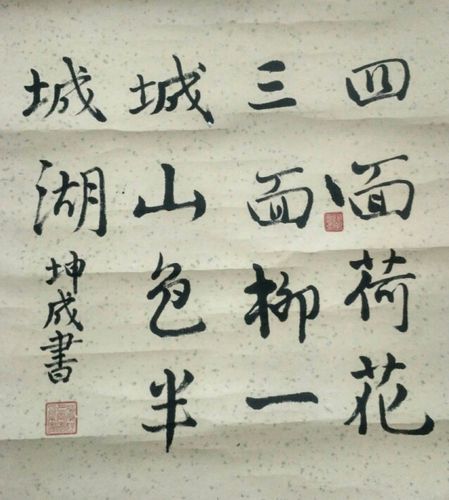 四面荷花
三面柳一
城山色半
城湖 坤成書